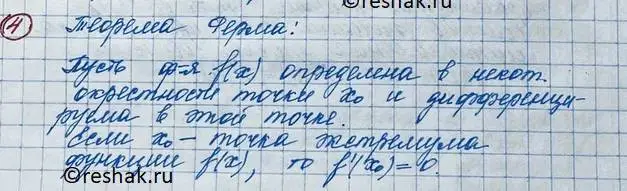 4 Теорема Ферма:
Пусть ф-я f(x) определена в некот.
окрестности точки x₀ и дифференци-
руема в этой точке.
Если x₀ – точка экстремума
функции f(x), то f'(x₀)=0.
Reshak.ru